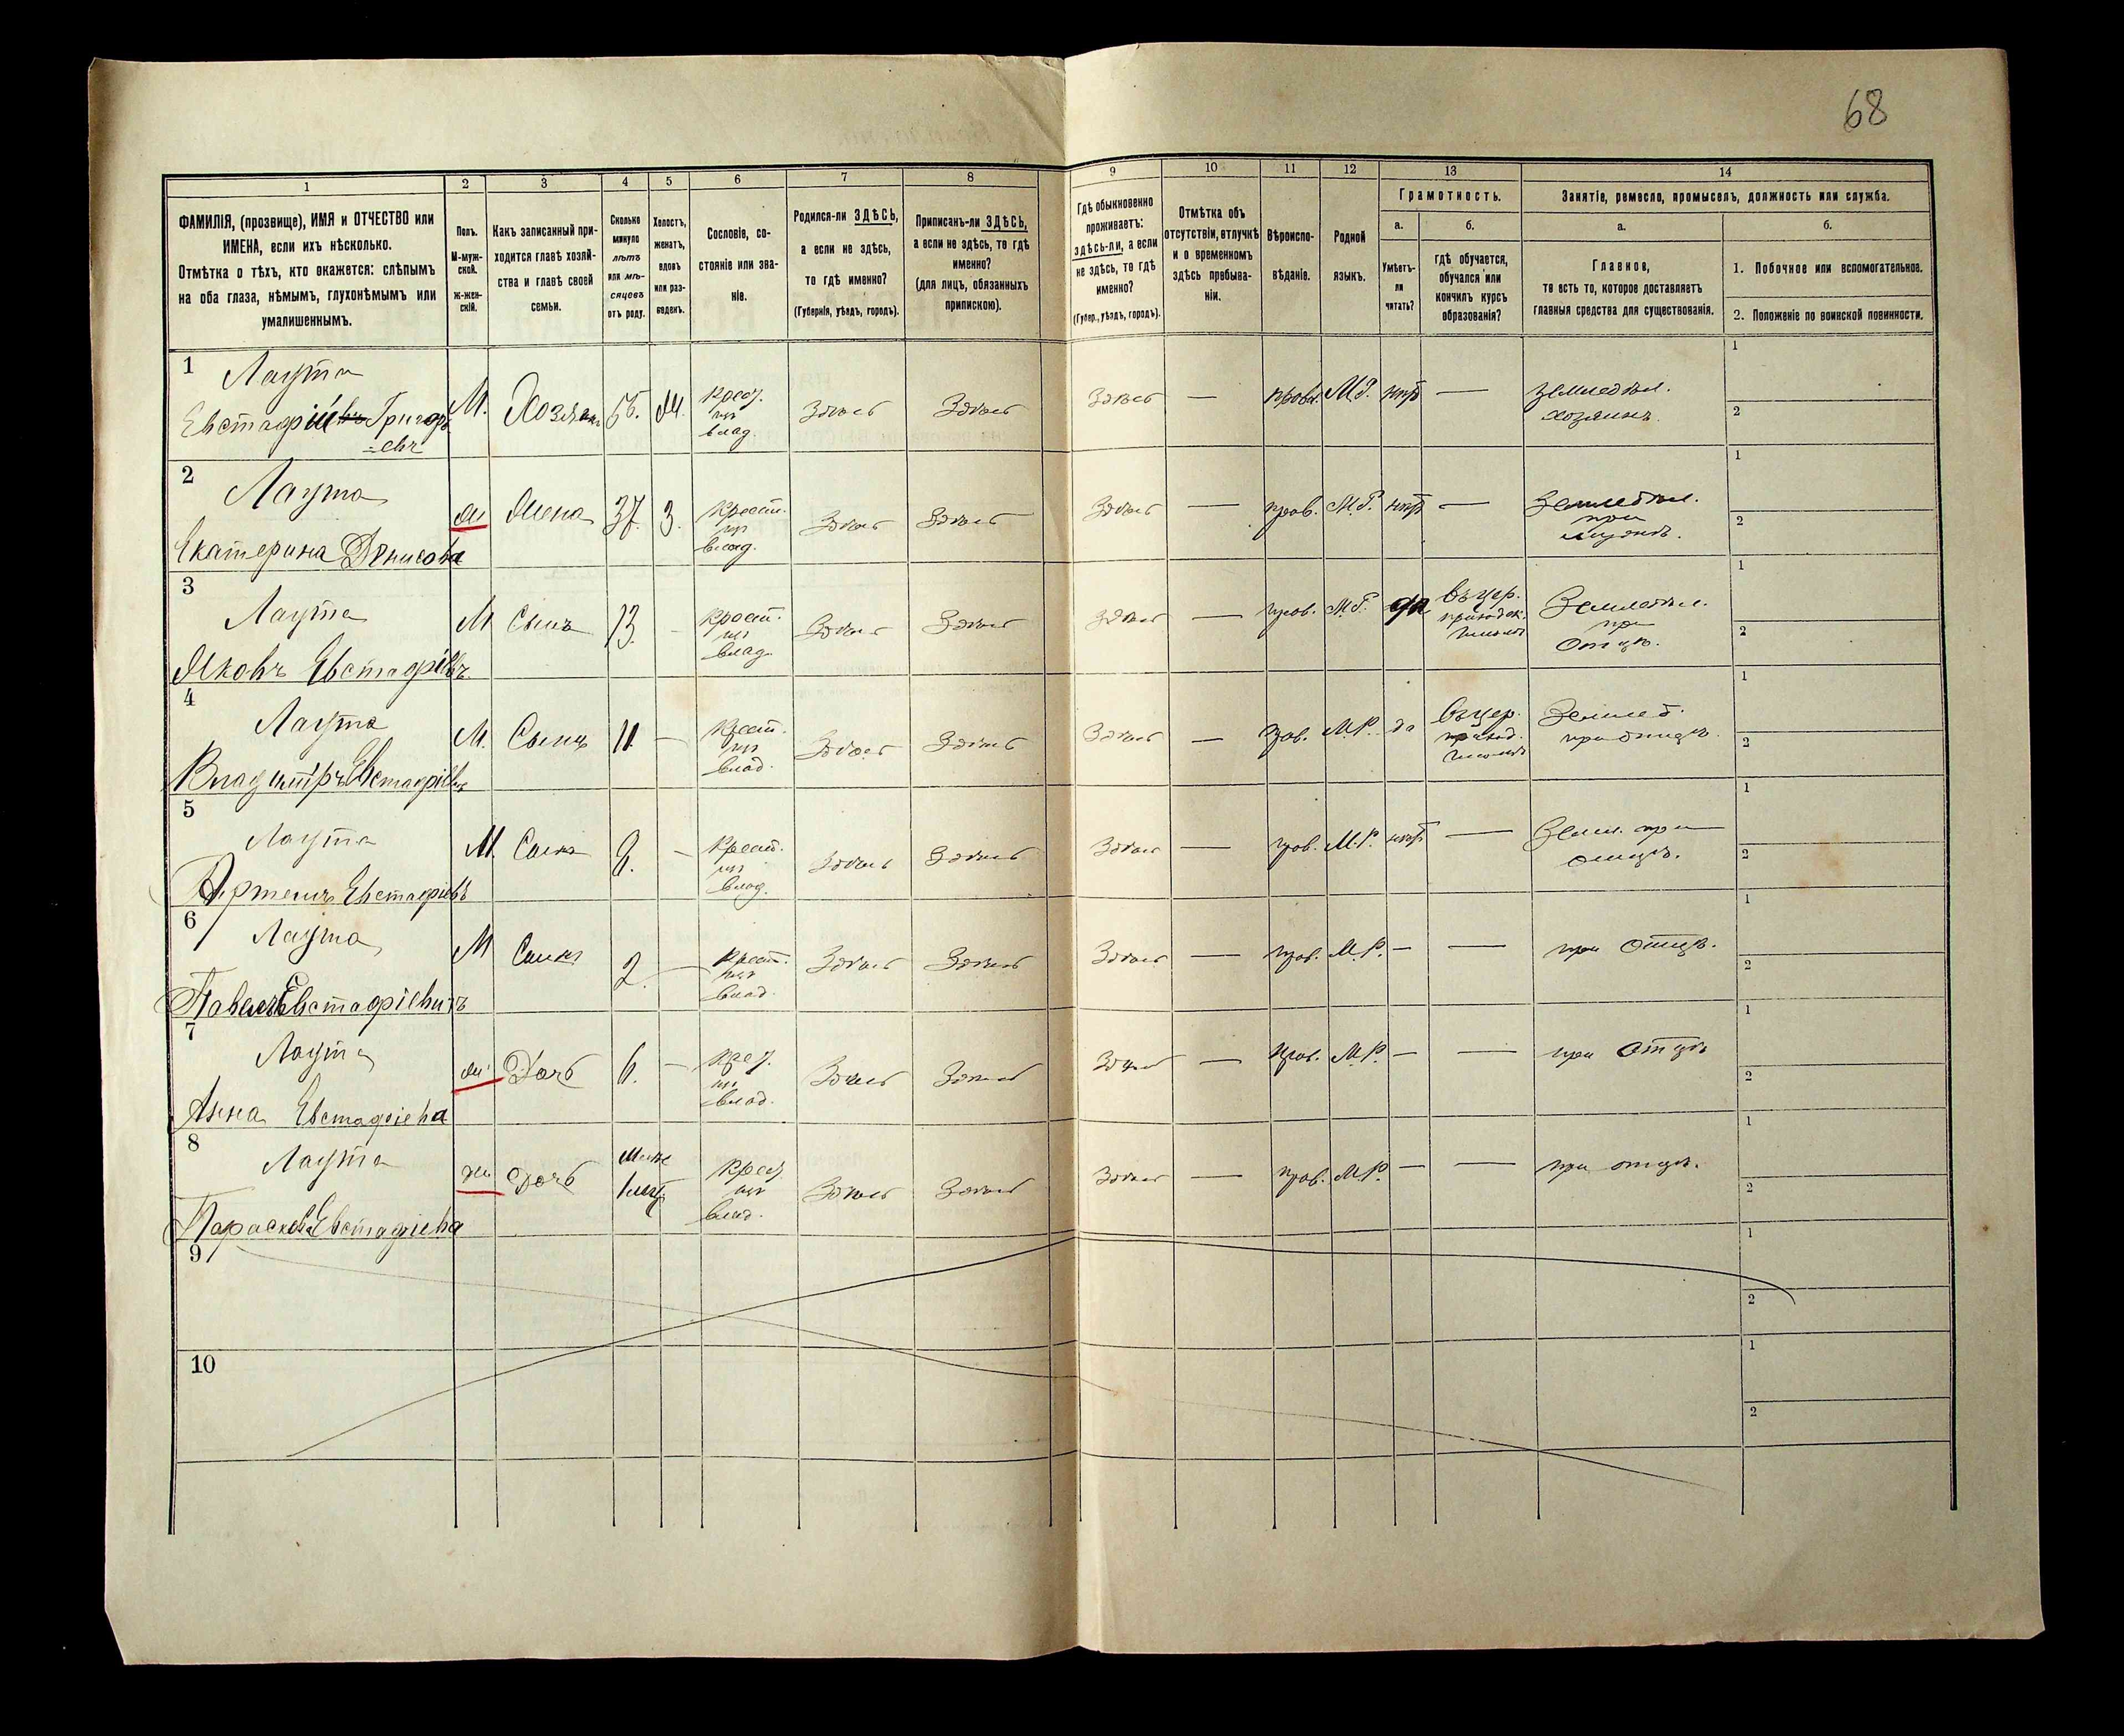 68
1 2 3 4 5 6 7 8 9 10 11 12 13 14
ФАМИЛІЯ, (прозвище), ИМЯ и ОТЧЕСТВО или
ИМЕНА, если ихъ нѣсколько.
Отмѣтка о тѣхъ, кто окажется: слѣпымъ
на оба глаза, нѣмымъ, глухонѣмымъ или
умалишеннымъ.
Полъ.
М-муж-
ской.
ж-жен-
скій.
Какъ записанный при-
ходится главѣ хозяй-
ства и главѣ своей
семьи.
Сколько
минуло
лѣтъ
или мѣ-
сяцевъ
отъ роду.
Холостъ,
женатъ,
вдовъ
или раз-
веденъ.
Сословіе, со-
стояніе или зва-
ніе.
Родился-ли ЗДѢСЬ,
а если не здѣсь,
то гдѣ именно?
(Губернія, уѣздъ, городъ).
Приписанъ-ли ЗДѢСЬ,
а если не здѣсь, то гдѣ
именно?
(для лицъ, обязанныхъ
припискою).
Гдѣ обыкновенно
проживаетъ:
здѣсь-ли, а если
не здѣсь, то гдѣ
именно?
(Губер., уѣздъ, городъ).
Отмѣтка объ
отсутствіи, отлучкѣ
и о временномъ
здѣсь пребыва-
ніи.
Вѣроиспо-
вѣданіе.
Родной
языкъ.
Грамотность.
а.
Умѣетъ-
ли
читать?
б.
гдѣ обучается,
обучался или
кончилъ курсъ
образованія?
Занятіе, ремесло, промыселъ, должность или служба.
а.
Главное,
то есть то, которое доставляетъ
главныя средства для существованія.
б.
1. Побочное или вспомогательное.
2. Положеніе по воинской повинности.
1 Лаута
Евстафій Григорь
-евъ
М. Хозяинъ 56. Ж.
Крест.
изъ
влад.
Здѣсь Здѣсь Здѣсь — правл. М.Р. нѣтъ —
земледѣл.
хозяинъ.
1
2
2 Лаута
Екатерина Денисова
ж Жена 37. З.
Крест.
изъ
влад.
Здѣсь Здѣсь Здѣсь — прав. М.Р. нѣтъ —
Земледѣл.
при
мужѣ.
1
2
3 Лаута
Яковъ Евстафіевъ
М Сынъ 13. —
Крест.
изъ
влад.
Здѣсь Здѣсь Здѣсь — прав. М.Р. да
въ цер.
приходск.
школѣ
Земледѣл.
при
отцѣ.
1
2
4 Лаута
Владиміръ Евстафіевъ
М. Сынъ 11. —
Крест.
изъ
влад.
Здѣсь Здѣсь Здѣсь — прав. М.Р. да
въ цер.
приход.
школѣ
Землед.
при отцѣ.
1
2
5 Лаута
Артемъ Евстафіевъ
М. Сынъ —
Крест.
изъ
влад.
Здѣсь Здѣсь Здѣсь — прав. М.Р. нѣтъ —
Земл. при
отцѣ.
1
2
6 Лаута
Павелъ Евстафіевичъ
М Сынъ 2. —
Крест.
изъ
влад.
Здѣсь Здѣсь Здѣсь — прав. М.Р. — — при отцѣ.
1
2
7 Лаута
Анна Евстафіева
ж Дочь 6. —
Крест.
изъ
влад.
Здѣсь Здѣсь Здѣсь — прав. М.Р. — — при отцѣ
1
2
8 Лаута
Параскева Евстафіева
ж Дочь
Крест.
изъ
влад.
Здѣсь Здѣсь Здѣсь — прав. М.Р. — — при отцѣ.
1
2
9
1
2
10
1
2